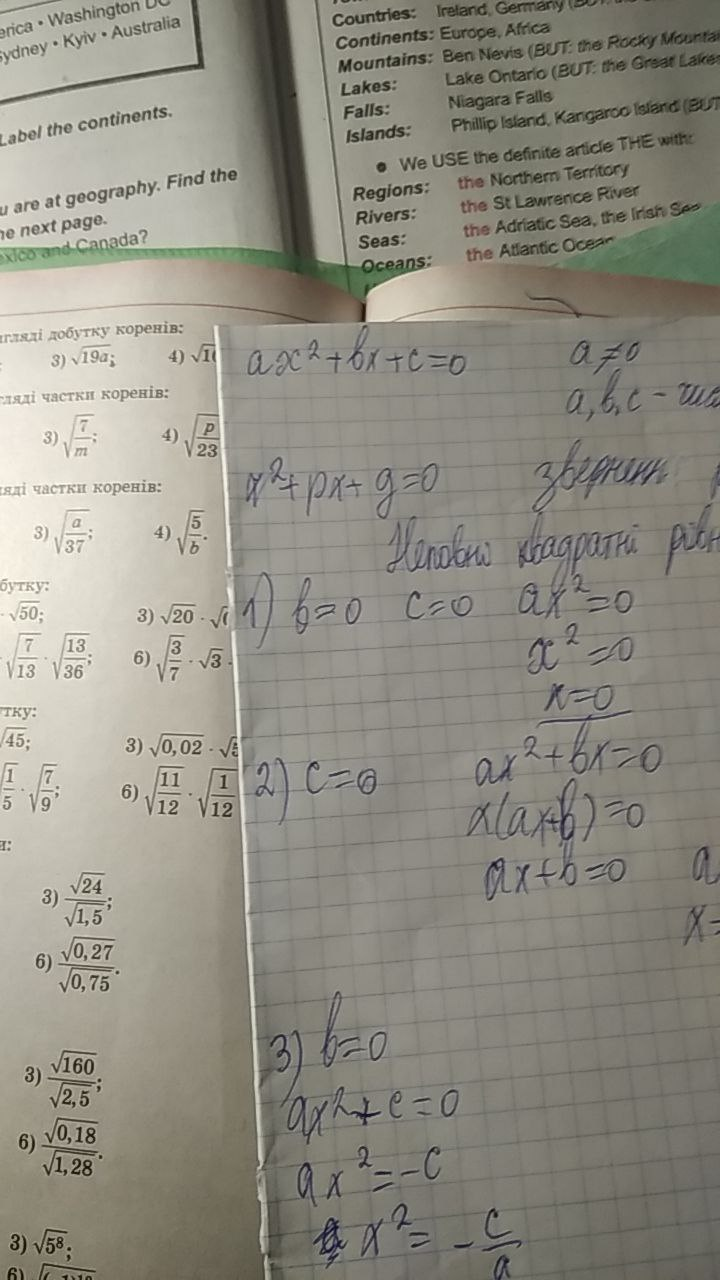 erica • Washington DC
ydney • Kyiv • Australia
Label the continents.
u are at geography. Find the
he next page.
exico and Canada?
Countries: Ireland, Germany
Continents: Europe, Africa
Mountains: Ben Nevis (BUT: the Rocky Mountai
Lakes: Lake Ontario (BUT: the Great Lakes
Falls: Niagara Falls
Islands: Phillip Island, Kangaroo Island (BUT
• We USE the definite article THE with:
Regions: the Northern Territory
Rivers: the St Lawrence River
Seas: the Adriatic Sea, the Irish Sea
Oceans: the Atlantic Ocean
гляді добутку коренів:
3) √19a; 4) √1
ляді частки коренів:
3) √(7/m); 4) √(p/23)
ляді частки коренів:
3) √(a/37); 4) √(5/b).
бутку:
· √50; 3) √20 · √
√(7/13) · √(13/36); 6) √(3/7) · √3 ·
тку:
√45; 3) √0,02 · √5
√(1/5) · √(7/9); 6) √(11/12) · √(1/12)
и:
3) √24/√1,5;
6) √0,27/√0,75.
3) √160/√2,5;
6) √0,18/√1,28.
3) √5⁸;
6)
ax²+bx+c=0 a≠0
a,b,c -
x²+px+g=0
Неповні квадратні рівн
1) b=0 c=0 ax²=0
x²=0
x=0
2) c=0 ax²+bx=0
x(ax+b)=0
ax+b=0 a
x=
3) b=0
ax²+c=0
ax²=-c
x²= -c/a